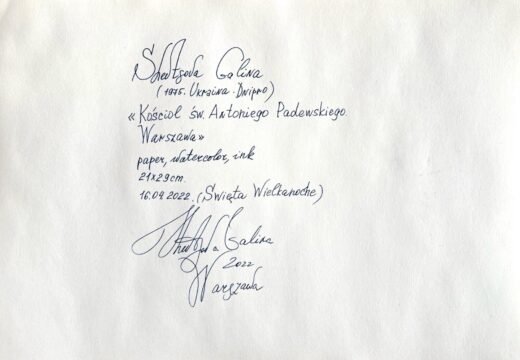 Shevtsova Galina
(1975. Ukraina. Dnipro)
«Kościół św. Antoniego Padewskiego.
Warszawa»
paper, watercolor, ink
21x29cm.
16.04.2022. (Święta Wielkanocne)
Shevtsova Galina
2022
Warszawa